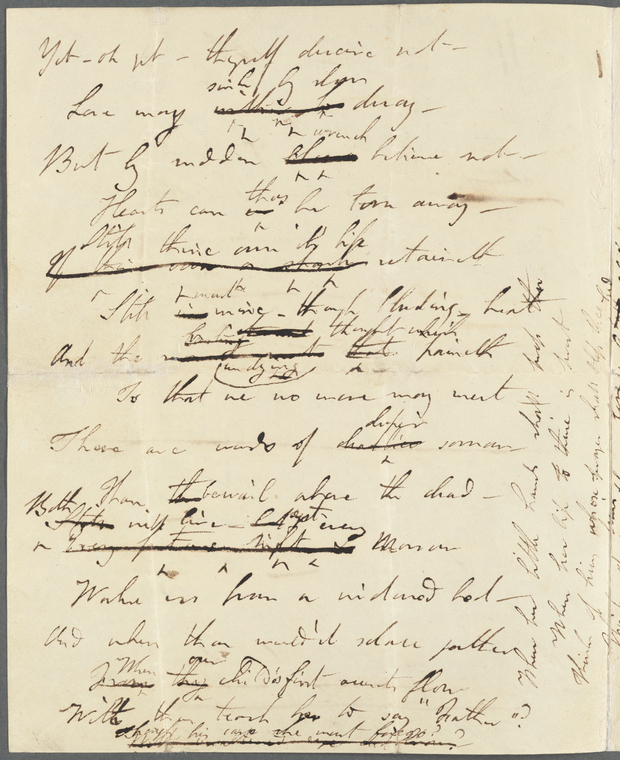 Yet - oh yet - thyself deceive not -
sink by slow
Love may decay -
wrench
But by sudden believe not -
Hearts can thus be torn away -
Still thine own its life
retaineth
Still must mine - though bleeding - beat
undying thought which
And the paineth
Is that we no more may meet
deeper
These are words of sorrow
Than the bewail above the dead -
Both
will live - every
Morrow
Wake us from a widowed bed -
And when thou would'st solace gather
When our
child's first accents flow
Wilt thou teach her to say "Father"?
though his care she must forego?
When her little hands shall press thee
When her lip to thine is prest
Think of him whose prayer shall bless thee